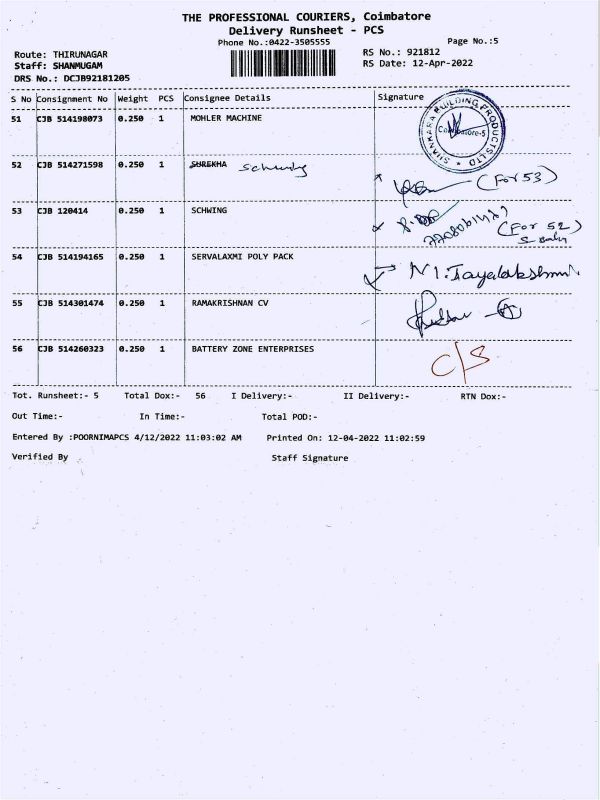 THE PROFESSIONAL COURIERS, Coimbatore
Delivery Runsheet - PCS
Phone No.:0422-3505555
Page No.:5
Route: THIRUNAGAR
RS No.: 921812
Staff: SHANMUGAM
RS Date: 12-Apr-2022
DRS No.: DCJB92181205
S No Consignment No Weight PCS Consignee Details Signature
51 CJB 514198073 0.250 1 MOHLER MACHINE
SHANKARA BUILDING PRODUCTS LTD
Coimbatore-5
52 CJB 514271598 0.250 1 SUREKHA Schwing
(For 53)
53 CJB 120414 0.250 1 SCHWING
(For 52)
54 CJB 514194165 0.250 1 SERVALAXMI POLY PACK
55 CJB 514301474 0.250 1 RAMAKRISHNAN CV
56 CJB 514260323 0.250 1 BATTERY ZONE ENTERPRISES
C/S
Tot. Runsheet:- 5 Total Dox:- 56 I Delivery:- II Delivery:- RTN Dox:-
Out Time:- In Time:- Total POD:-
Entered By :POORNIMAPCS 4/12/2022 11:03:02 AM Printed On: 12-04-2022 11:02:59
Verified By Staff Signature